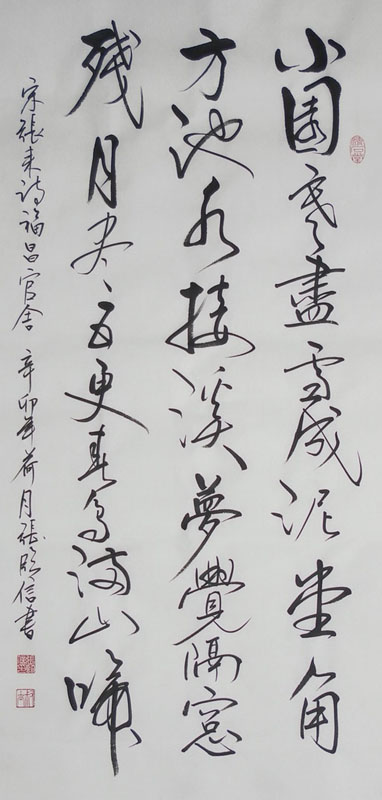 小园寒盡雪成泥堂角
方池水接溪夢覺隔窓
残月尽五更春鸟满山啼
宋張耒诗福昌官舍 辛卯年荷月張明信書